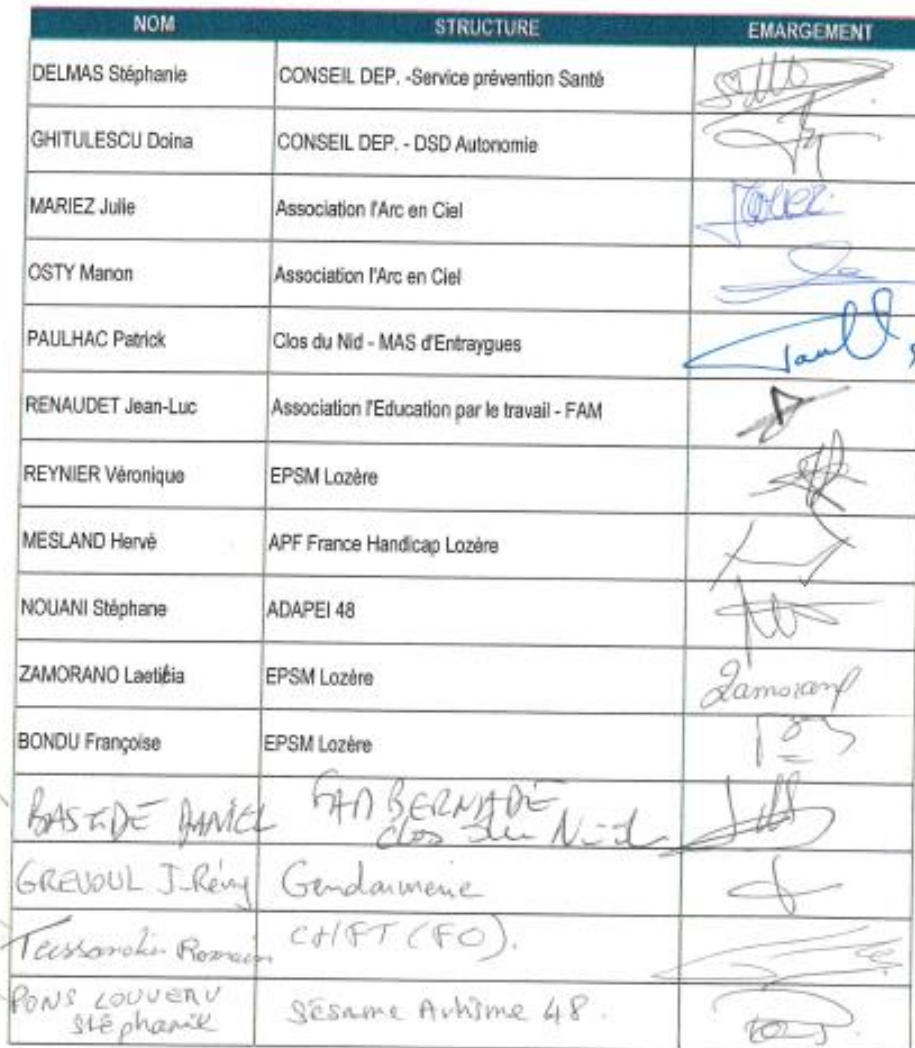 NOM STRUCTURE EMARGEMENT
DELMAS Stéphanie CONSEIL DEP. -Service prévention Santé
GHITULESCU Doina CONSEIL DEP. - DSD Autonomie
MARIEZ Julie Association l'Arc en Ciel
OSTY Manon Association l'Arc en Ciel
PAULHAC Patrick Clos du Nid - MAS d'Entraygues
RENAUDET Jean-Luc Association l'Education par le travail - FAM
REYNIER Véronique EPSM Lozère
MESLAND Hervé APF France Handicap Lozère
NOUANI Stéphane ADAPEI 48
ZAMORANO Laeticia EPSM Lozère Zamorano
BONDU Françoise EPSM Lozère
BASTIDE DANIEL FAM BERNADE
Clos du Nid
GREVOUL J-Rémy Gendarmerie
Romain (FO).
PONS LOUVERV
Stéphanie Sésame Autisme 48.